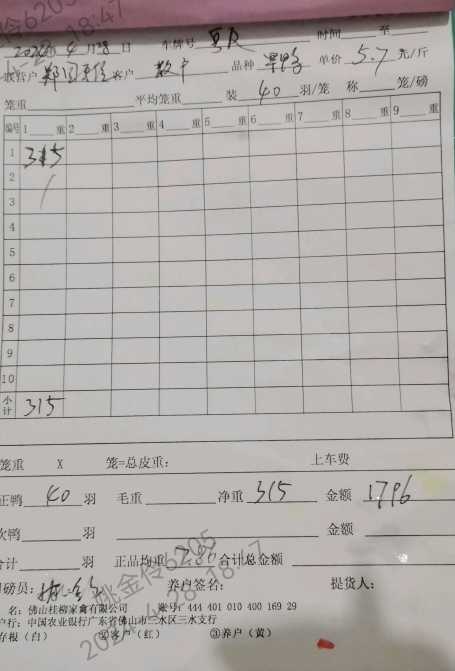 2024年4月28日 车牌号 时间 至
客户 散户 品种 单价 5.7 元/斤
笼重 平均笼重 装 40 羽/笼 称 笼/磅
编号 1 重 2 重 3 重 4 重 5 重 6 重 7 重 8 重 9 重
1 315
2
3
4
5
6
7
8
9
10
小计 315
笼重 X 笼=总皮重: 上车费
正鸭 40 羽 毛重 净重 315 金额 1796
次鸭 羽 金额
合计 羽 正品均重 7.87 合计总金额
磅员: 养户签名: 提货人:
名: 佛山桂柳家禽有限公司 账号: 444 401 010 400 169 29
户行: 中国农业银行广东省佛山市三水区三水支行
存根（白） ②客户（红） ③养户（黄）
姚金伶6205
2024-4-28 18:47